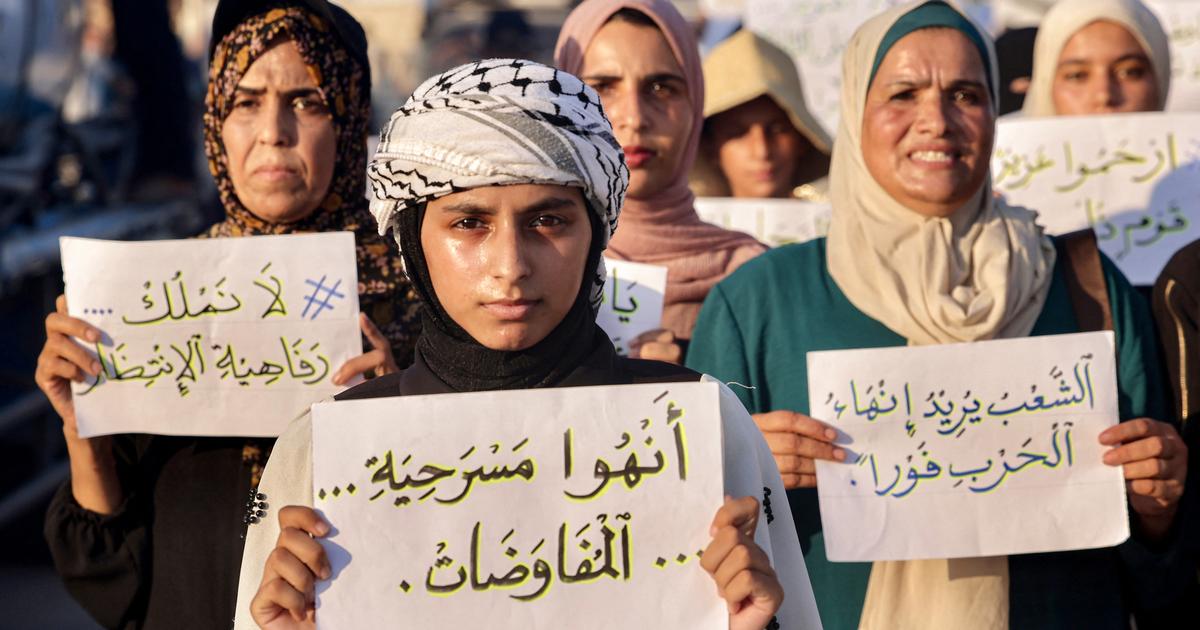 # لَا نَمْلُكْ ....
رَفَاهِيَةِ الإِنْتِظَار
أَنْهُوا مَسْرَحِيَةِ ...
... الْمُفَاوَضَاتْ .
الشَّعْبُ يُرِيْدُ إِنْهَاءُ
الْحَرْبِ فَوْراً.
إرْحَمُوا عَزِيزَ
قَوْمٍ ذَل